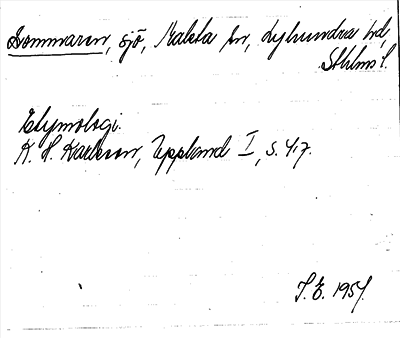 Sommaren, sjö, Malsta sn, Lyhundra hd,
Sthlms l.
Etymologi.
K. H. Karlsson, Uppland I, s. 417.
S. E. 1954.